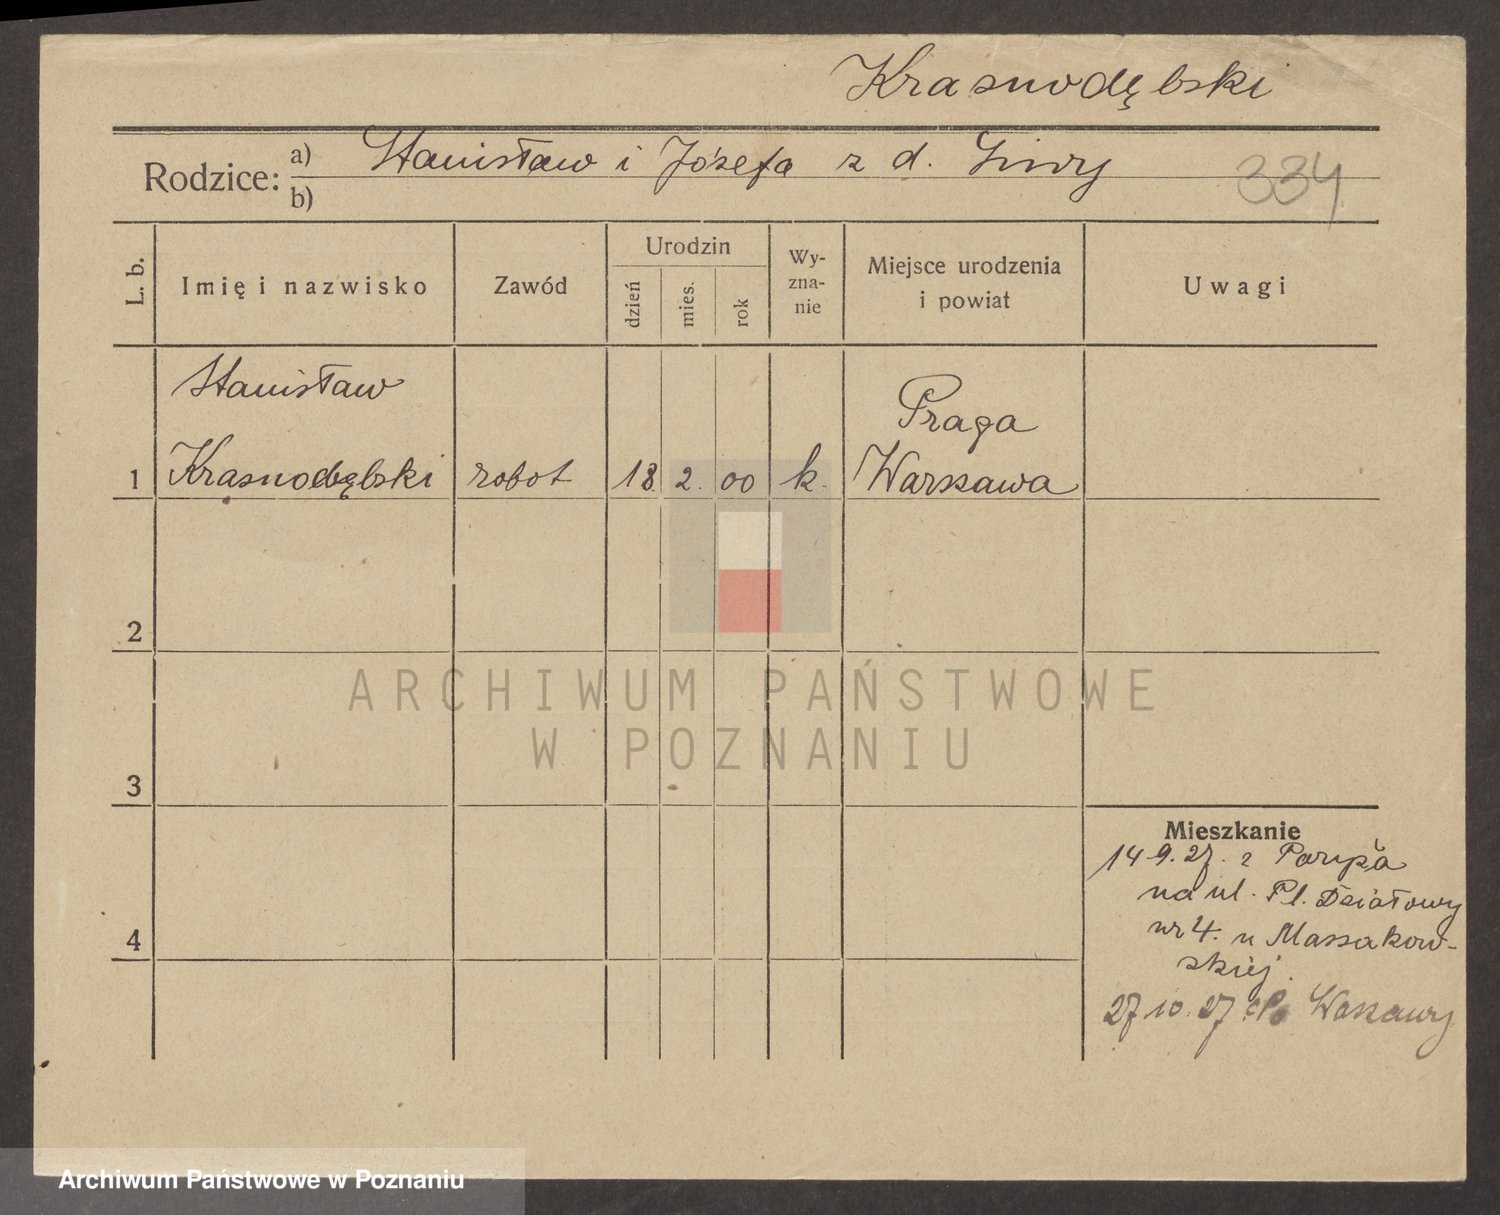 Krasnodębski
Rodzice: a) Stanisław i Józefa z d.
b)
334
L. b.
Imię i nazwisko
Zawód
Urodzin
dzień
mies.
rok
Wy-
zna-
nie
Miejsce urodzenia
i powiat
Uwagi
Stanisław
Praga
1 Krasnodębski robot 18. 2. 00 k. Warszawa
2
3
4
Mieszkanie
14 9. 27. z
na ul. Pl. Działowy
nr 4. u Massakow-
skiej.
27 10. 27 do
ARCHIWUM PAŃSTWOWE
W POZNANIU
Archiwum Państwowe w Poznaniu